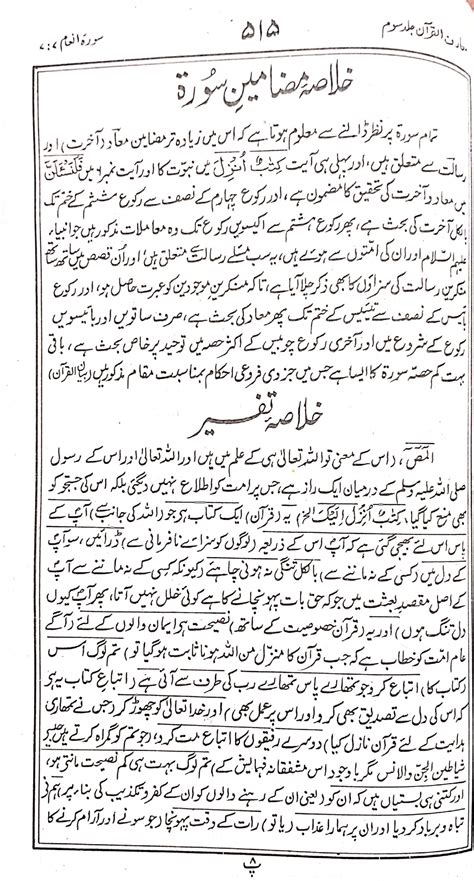 معارف القرآن جلد سوم ۵۱۵ سورۂ انعام ۷:۷
خلاصۂ مضامینِ سورۃ
تمام سورۃ پر نظر ڈالنے سے معلوم ہوتا ہے کہ اس میں زیادہ تر مضامین معاد (آخرت) اور
رسالت سے متعلق ہیں، اور پہلی ہی آیت كِتٰبٌ اُنْزِلَ میں نبوّت کا اور آیت نمبر ۶ میں فَلَنَسْـَٔلَنَّ
میں معاد و آخرت کی تحقیق کا مضمون ہے، اور رکوع چہارم کے نصف سے رکوع ششم کے ختم تک
بالکل آخرت کی بحث ہے، پھر رکوع ہشتم سے اکیسویں رکوع تک وہ معاملات مذکور ہیں جو انبیاء
علیہم السلام اور ان کی امتوں سے ہوئے ہیں، یہ سب مسئلے رسالت سے متعلق ہیں، اور ان قصص میں ساتھ ساتھ
منکرین رسالت کی سزاؤں کا بھی ذکر چلا آیا ہے، تاکہ منکرین موجودین کو عبرت حاصل ہو، اور رکوع
بائیس کے نصف سے تئیس کے ختم تک پھر معاد کی بحث ہے، صرف ساتویں اور بائیسویں
رکوع کے شروع میں اور آخری رکوع چوبیس کے اکثر حصہ میں توحید پر خاص بحث ہے، باقی
بہت کم حصہ سورۃ کا ایسا ہے جس میں جزوی فروعی احکام بمناسبت مقام مذکور ہیں (بیان القرآن)
خلاصۂ تفسیر
الٓمٓصٓ، (اس کے معنی تو اللہ تعالیٰ ہی کے علم میں ہیں اور اللہ تعالیٰ اور اس کے رسول
صلی اللہ علیہ وسلم کے درمیان ایک راز ہے، جس پر امت کو اطلاع نہیں دی گئی بلکہ اس کی جستجو کو
بھی منع کیا گیا، كِتٰبٌ اُنْزِلَ اِلَیْكَ الخ یہ (قرآن) ایک کتاب ہی جو (اللہ کی جانب سے) آپ کے
پاس اس لئے بھیجی گئی ہے کہ آپ اس کے ذریعہ (لوگوں کو سزائے نافرمانی سے) ڈرائیں، سو آپ
کے دل میں (کسی کے نہ ماننے سے) بالکل تنگی نہ ہونی چاہئے (کیونکہ کسی کے نہ ماننے سے آپ
کے اصل مقصد بعثت میں جو کہ حق بات پہونچانے کا ہے کوئی خلل نہیں آتا، پھر آپ کیوں
دل تنگ ہوں) اور یہ (قرآن خصوصیت کے ساتھ) نصیحت ہی ایمان والوں کے لئے (آگے
عام امت کو خطاب ہے کہ جب قرآن کا منزل من اللہ ہونا ثابت ہو گیا تو) تم لوگ اس
(کتاب کا) اتباع کرو جو تمھارے پاس تمھارے رب کی طرف سے آئی ہے (اتباع کتاب یہ ہی
کہ اس کی دل سے تصدیق بھی کرو اور اس پر عمل بھی) اور خدا تعالیٰ کو چھوڑ کر (جس نے تمھاری
ہدایت کے لئے قرآن نازل کیا) دوسرے رفیقوں کا اتباع مت کرو (جو تم کو گمراہ کرتے ہیں جیسے
شیاطین الجن والانس مگر باوجود اس مشفقانہ فہمائش کے) تم لوگ بہت ہی کم نصیحت مانتے ہو،
اور کتنی ہی بستیاں ہیں کہ ان کو (یعنی ان کے رہنے والوں کو ان کے کفر و تکذیب کی بناء پر) ہم نی
تباہ و برباد کر دیا اور ان پر ہمارا عذاب (یا تو) رات کے وقت پہونچا (جو سونے اور آرام کرنے کا
پ ۸